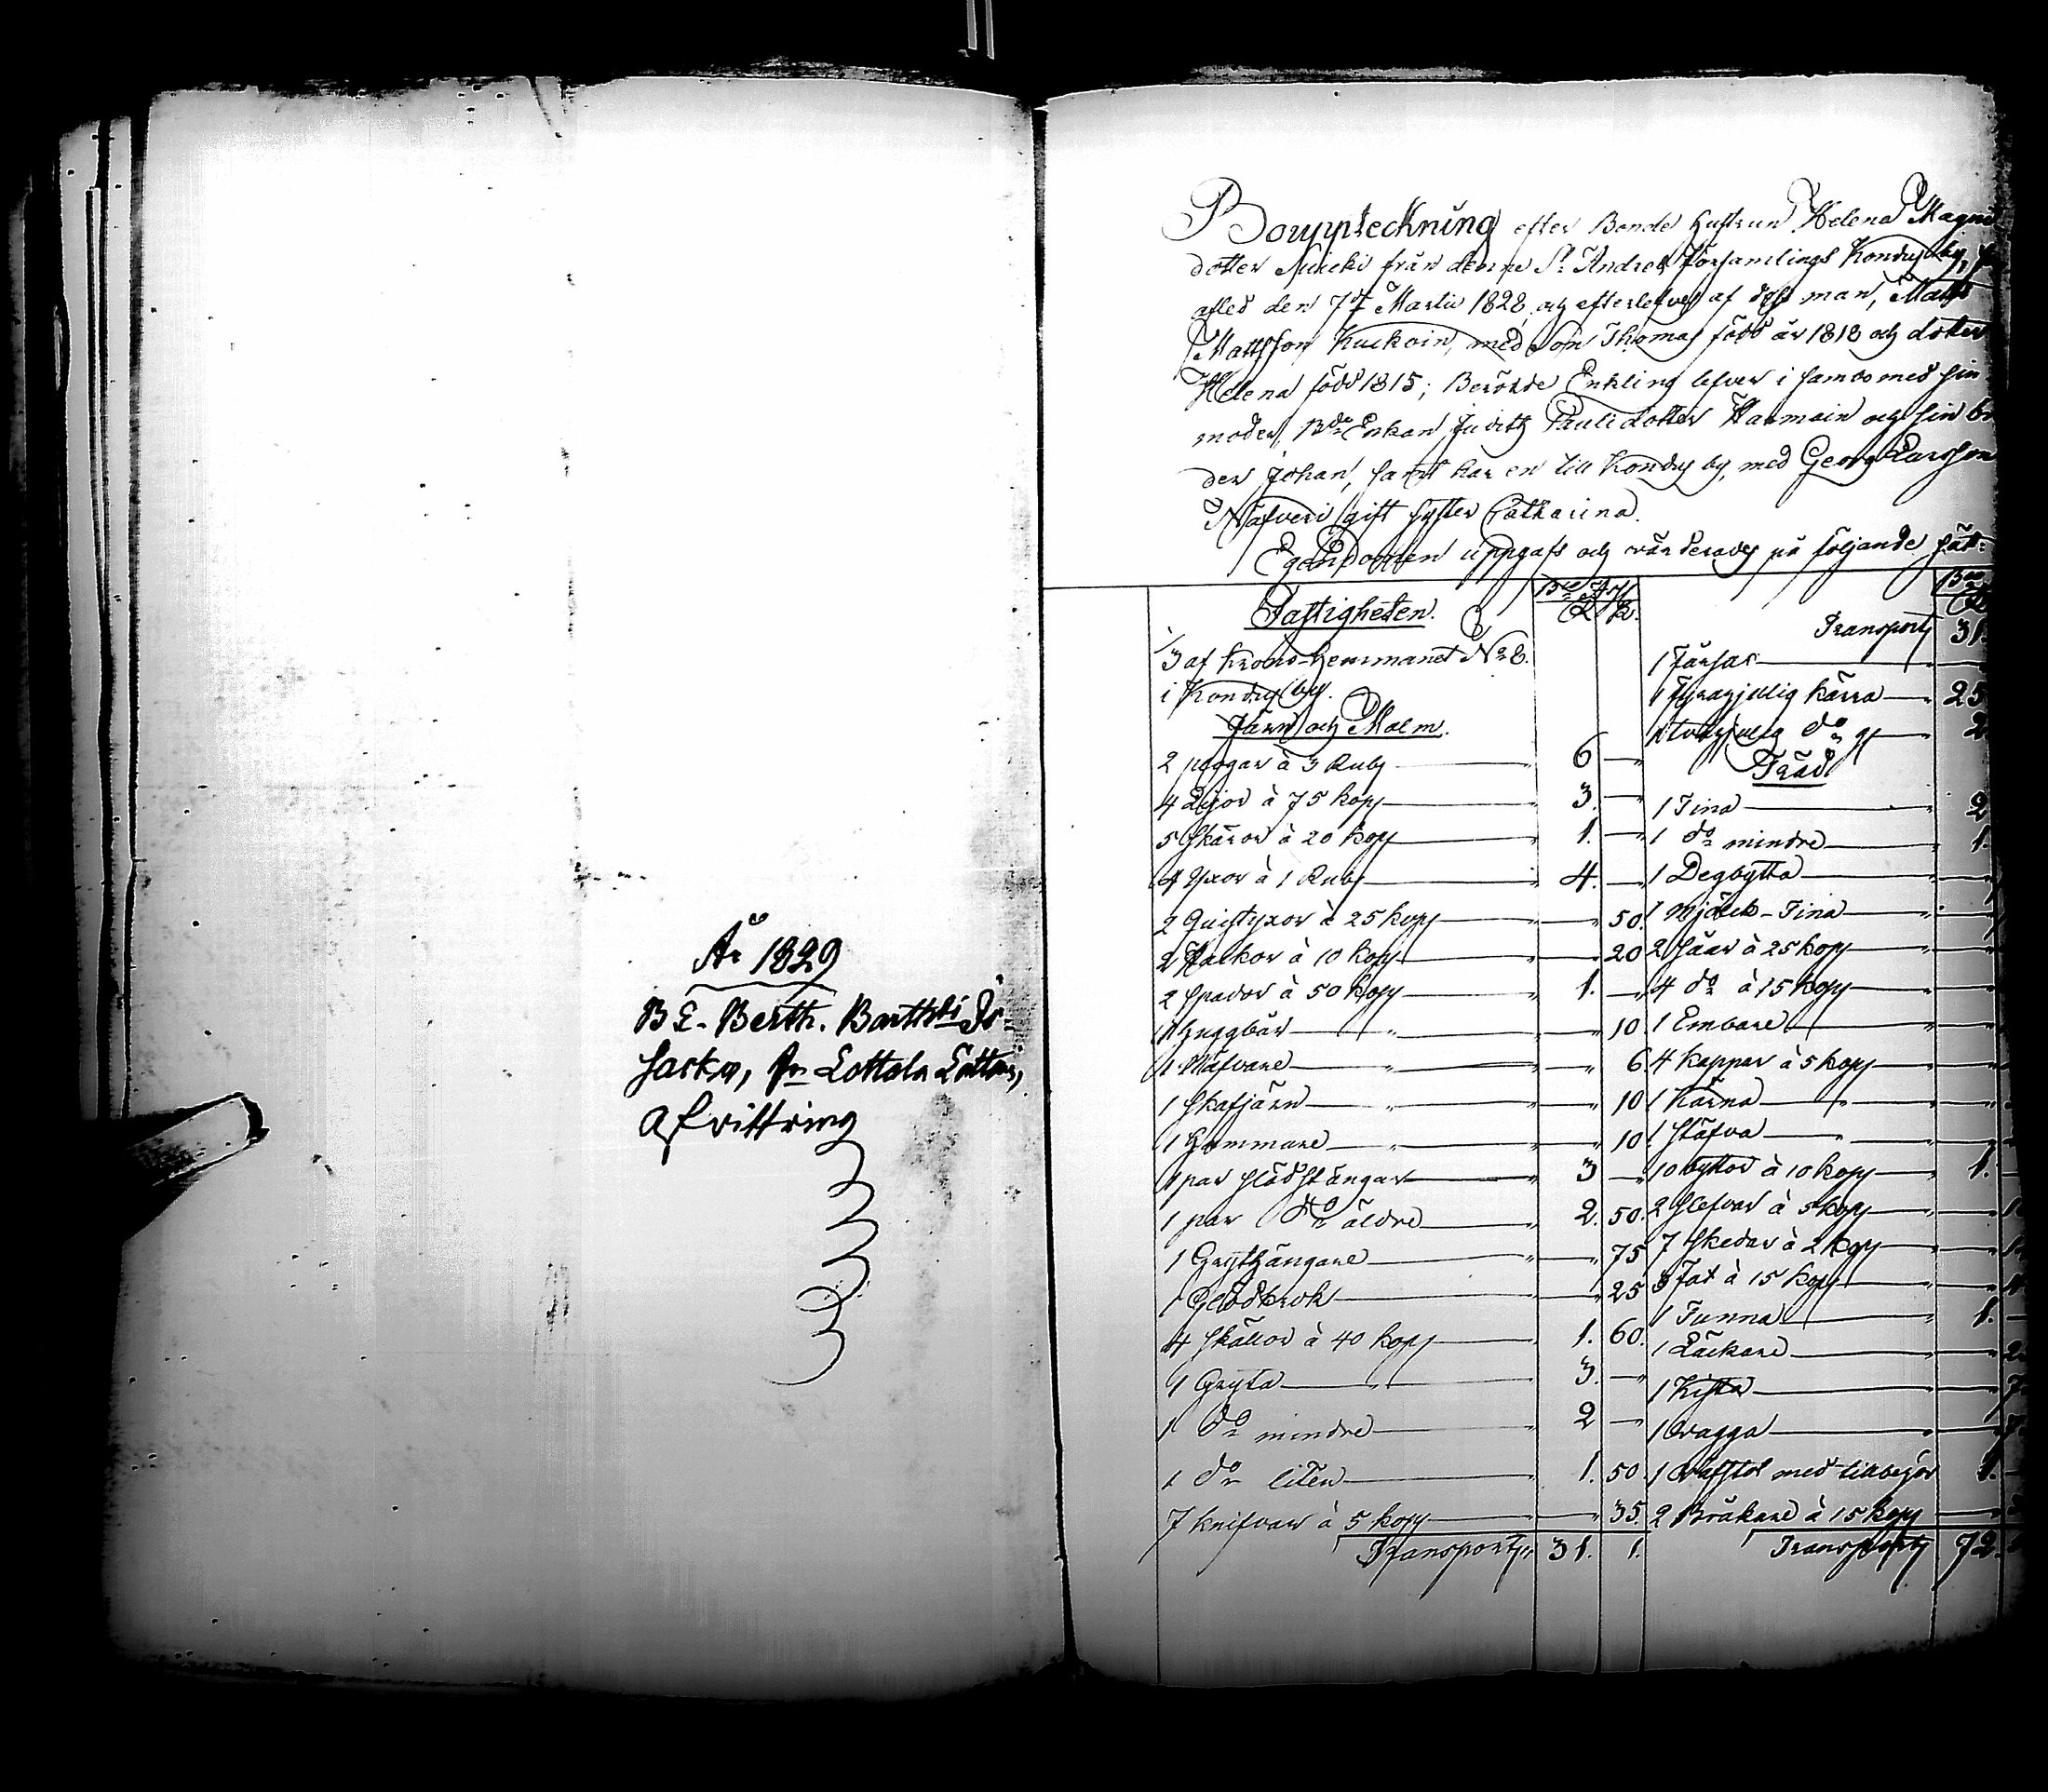 År 1829
B E. Berth. Barthols Do-
fasko, fn Lottola Lottens,
afvittring
Bouppteckning efter Bonde hustrun Helena Magnus
dotter Nuicki från denne St Andreæ Församlings Kondusby,
afled den 7de Martii 1828, och efterlefves af dess man, Matts
Mattsson Kuckoin, med son Thomas född år 1818 och dotter
Helena född 1815; Berörde Enkling lefver i sambo med sin
moder, Bde Enkan Judith Paulidotter Harmain och sin bro
der Johan, samt har en till Kondus by, med Georg Larsson
Näfveri gift syster Catharina.
Egendomen uppgafs och värderades på följande sätt:
Fastigheten.
1/3 af Krono-hemmanet No 8.
i Kondus by.
Järn och Malm.
2 plogar à 3 Rub 6 —
4 Lijor à 75 kop 3. —
5 Skäror à 20 kop 1. —
4 Yxor à 1 Rub 4. —
2 Quistyxor à 25 kop — 50.
2 Hackor à 10 kop — 20
2 Spador à 50 kop 1. —
1 Huggbår — 10
1 Näfvare — 6
1 Skafjärn — 10
1 Hammare — 10
1 par Slädstänger 3 —
1 par do äldre 2. 50.
1 Grythängare — 75
1 Glödkrok — 25
4 Skällor à 40 kop 1. 60.
1 Gryta 3. —
1 do mindre 2 —
1 do liten 1. 50
7 knifvar à 5 kop — 35.
Transport 31. 1.
Transport 31.
1 Järsax —
1 fyrahjulig kärra 25
1 tvåhjulig do 2
Träd
1 Tina 2
1 do mindre 1.
1 Degbytta —
1 Mjölk-Tina —
2 såar à 25 kop —
4 do à 15 kop —
1 Embare —
4 kappar à 5 kop —
1 Kärna —
1 Stäfva —
10 byttor à 10 kop 1. —
2 Slefvar à 5 kop —
7 Skedar à 2 kop —
3 Fat à 15 kop —
1 Tunna 1. —
1 Läckare —
1 Kista —
1 vagga —
1 väfstol med tillbehör 1. —
2 Bråkare à 15 kop —
Transport 72.